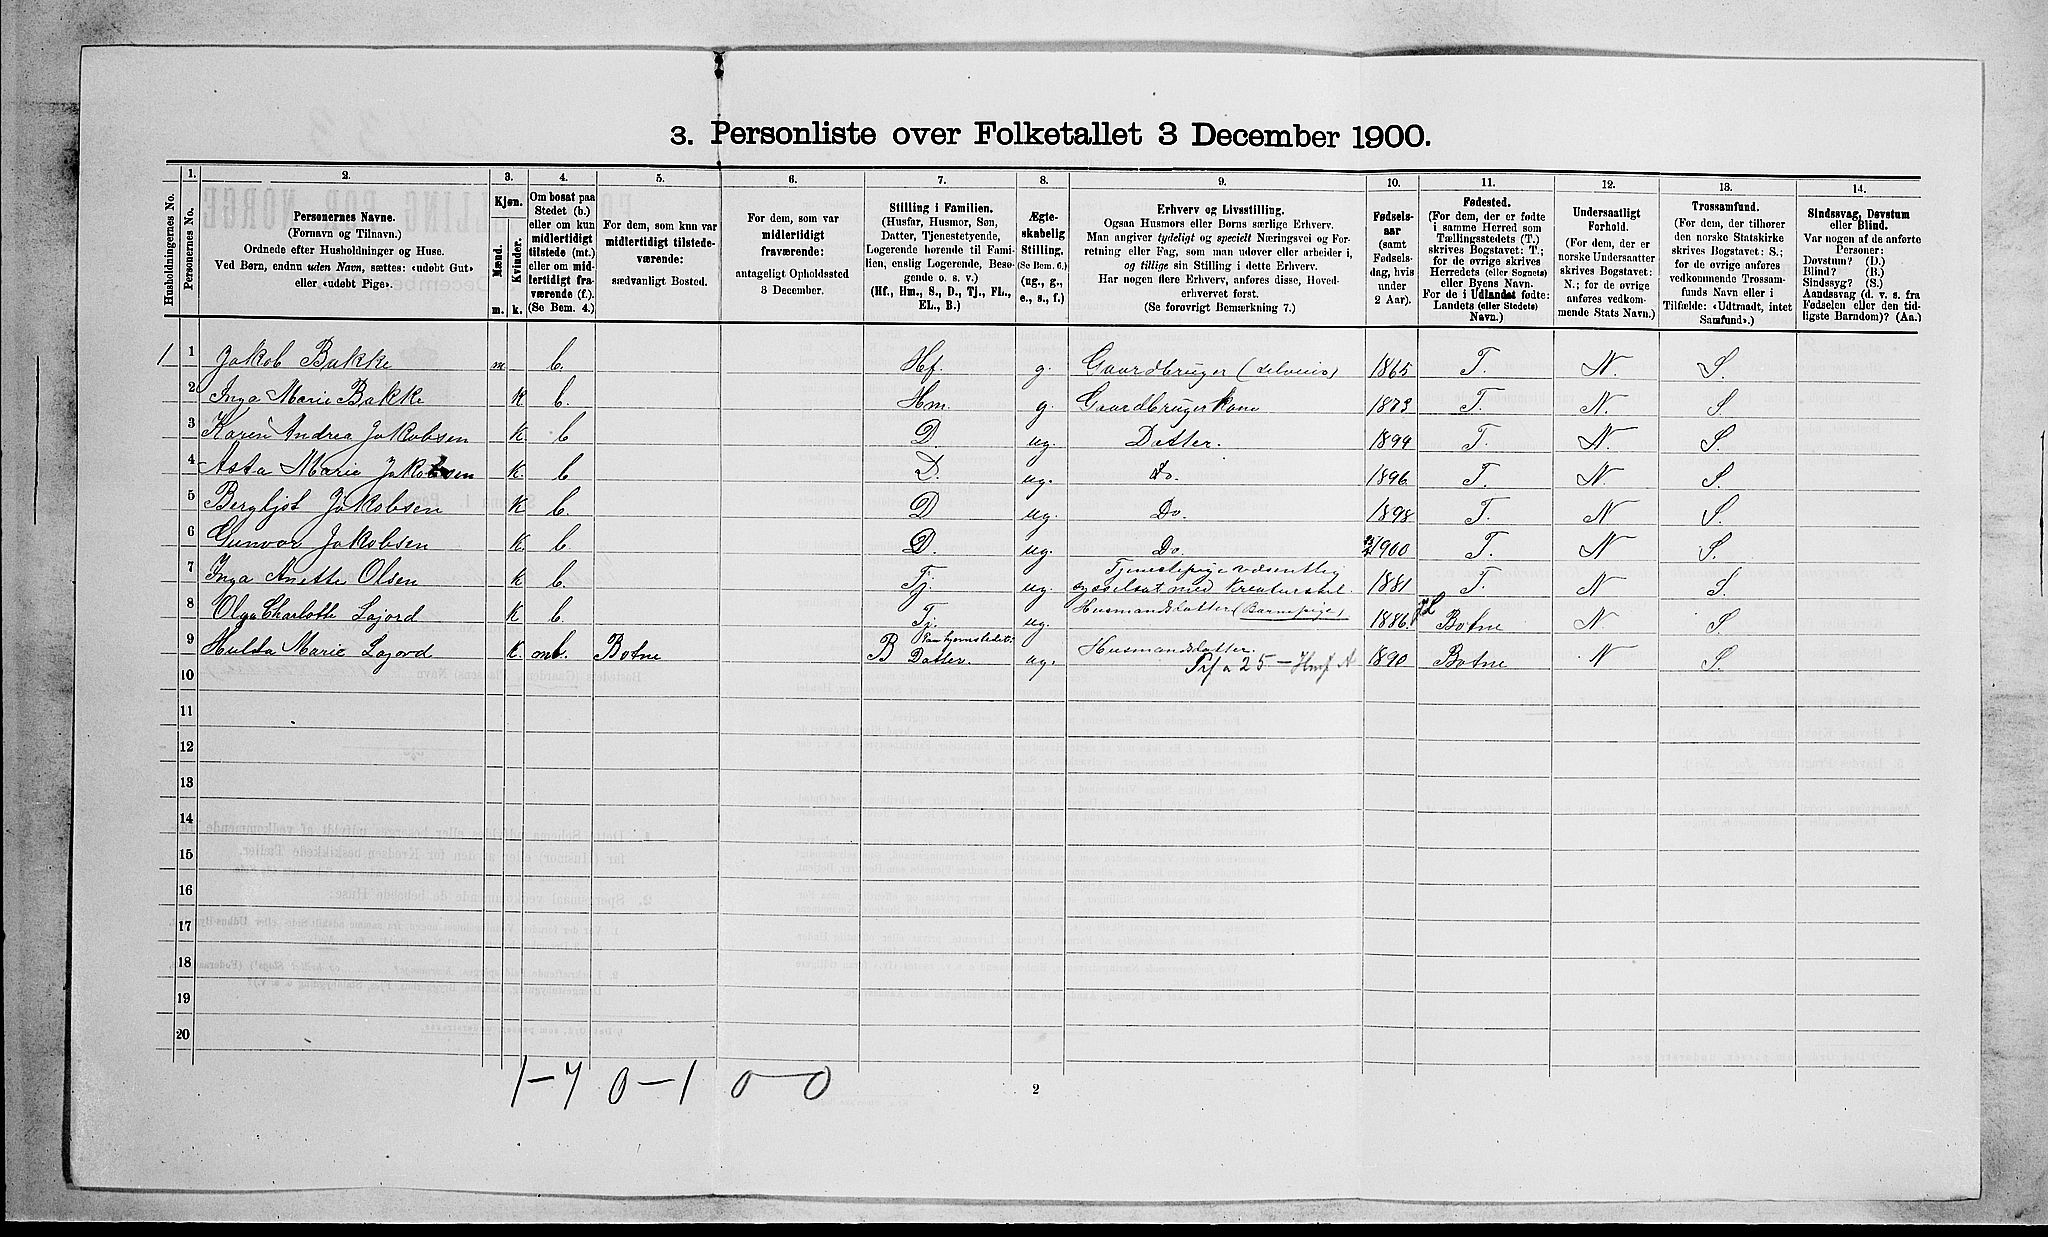 3. Personliste over Folketallet 3 December 1900.
Husholdningernes No.
1.
Personernes No.
2.
Personernes Navne.
(Fornavn og Tilnavn.)
Ordnede efter Husholdninger og Huse.
Ved Børn, endnu uden Navn, sættes: «udøbt Gut»
eller «udøbt Pige».
3.
Kjøn.
Mænd.
Kvinder.
m. k.
4.
Om bosat paa
Stedet (b.)
eller om kun
midlertidigt
tilstede (mt.)
eller om mid-
lertidigt fra-
værende (f.)
(Se Bem. 4.)
5.
For dem, som kun var
midlertidigt tilstede-
værende:
sædvanligt Bosted.
6.
For dem, som var
midlertidigt
fraværende:
antageligt Opholdssted
3 December.
7.
Stilling i Familien.
(Husfar, Husmor, Søn,
Datter, Tjenestetyende,
Logerende hørende til Fami-
lien, enslig Logerende, Besø-
gende o. s. v.)
(Hf., Hm., S., D., Tj., FL.,
EL., B.)
8.
Ægte-
skabelig
Stilling.
(Se Bem. 6.)
(ug., g.,
e., s., f.)
9.
Erhverv og Livsstilling.
Ogsaa Husmors eller Børns særlige Erhverv.
Man angiver tydeligt og specielt Næringsvei og For-
retning eller Fag, som man udøver eller arbeider i,
og tillige sin Stilling i dette Erhverv.
Har nogen flere Erhverv, anføres disse, Hoved-
erhvervet først.
(Se forøvrigt Bemærkning 7.)
10.
Fødsels-
aar
(samt
Fødsels-
dag, hvis
under
2 Aar).
11.
Fødested.
(For dem, der er fødte
i samme Herred som
Tællingsstedets (T.)
skrives Bogstavet: T.;
for de øvrige skrives
Herredets (eller Sognets)
eller Byens Navn.
For de i Udlandet fødte:
Landets (eller Stedets)
Navn.)
12.
Undersaatligt
Forhold.
(For dem, der er
norske Undersaatter
skrives Bogstavet:
N.; for de øvrige
anføres vedkom-
mende Stats Navn.)
13.
Trossamfund.
(For dem, der tilhører
den norske Statskirke
skrives Bogstavet: S.;
for de øvrige anføres
vedkommende Trossam-
funds Navn eller i
Tilfælde: «Udtraadt, intet
Samfund».)
14.
Sindssvag, Døvstum
eller Blind.
Var nogen af de anførte
Personer:
Døvstum? (D.)
Blind? (B.)
Sindssyg? (S.)
Aandssvag (d. v. s. fra
Fødselen eller den tid-
ligste Barndom)? (Aa.)
1 1 Jakob Bakke m b. Hf. g. Gaardbruger (selveier) 1865 T. N. S.
2 Inga Marie Bakke K b. Hm. g. Gaardbrugerkone 1873 T. N. S
3 Karen Andrea Jakobsen K. b D. ug. Datter. 1894 T. N S.
4 Asta Marie Jakobsen K. b D. ug. do. 1896 T. N. S.
5 Bergljot Jakobsen K b. D ug. Do. 1898 T. N S.
6 Gunvor Jakobsen K. b D. ug. Do. 1900 T. N S.
7 Inga Anette Olsen K b. Tj. ug. Tjenestepige væsentlig
sysselsat med Kreaturstel. 1881 T. N S.
8 Olga Charlotte Lajord K b. Tj. ug. Husmandsdatter (Barnepige) 1886. Botne N S.
9 Hulda Marie Lajord K. mt. Botne B Datter. ug. Husmandsdatter. 1890 Botne N S.
25 - Husf A
10
11
12
13
14
15
16
17
18
19
20
1-7 0-1 0-0
2